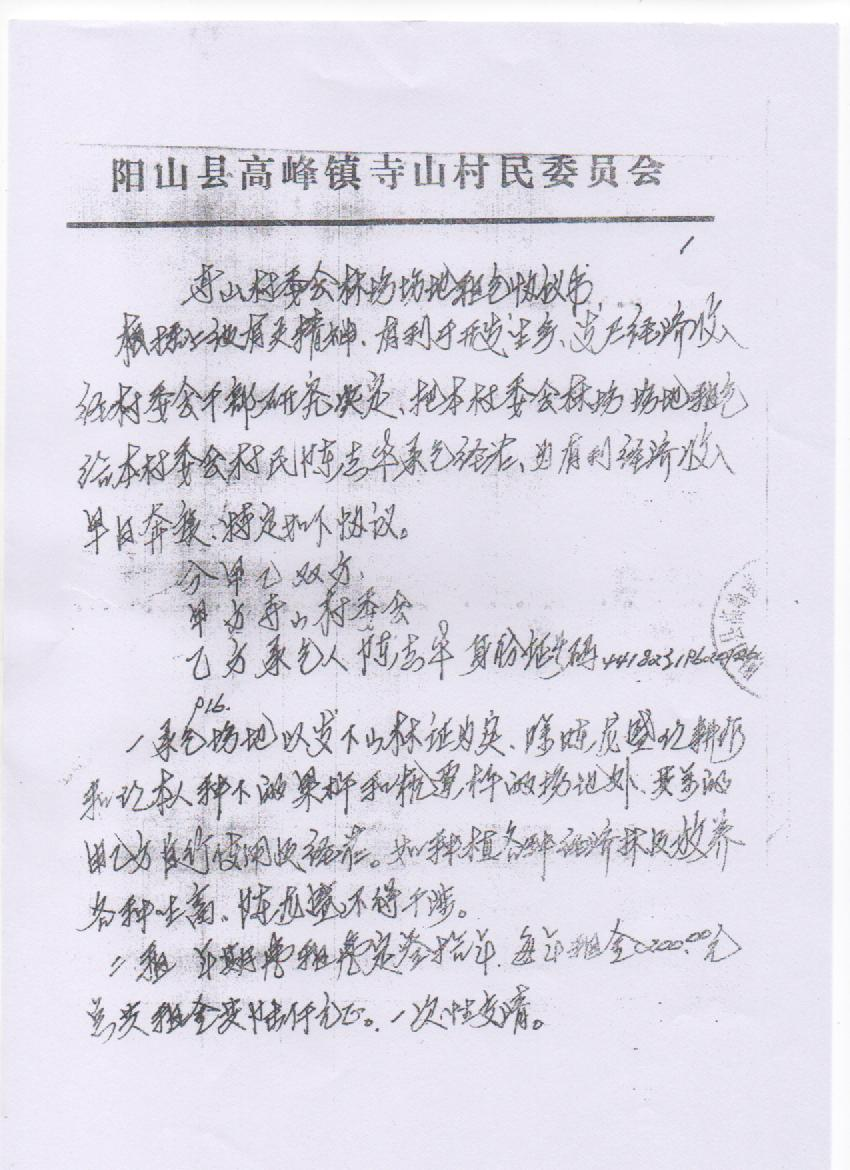 阳山县高峰镇寺山村民委员会
1
寺山村委会林场场地租包协议书
根据上级有关精神、有利于开发生产、发展经济收入
经村委会干部研究决定、把本村委会林场场地租包
给本村委会村民陈志华承包经营、为有利经济收入
早日奔康、特定如下协议。
分甲乙双方、
甲方寺山村委会
乙方承包人陈志华身份证号码
一承包场地以发下山林证为实、除陈龙盛现耕作
和现本人种下的果树和的场地外、其余的
由乙方自行使用及经营。如种植各种经济林及放养
各种生畜、陈龙盛不得干涉。
二租期叁拾年、每年租金200.00元
总共租金陆仟元正。一次性交清。